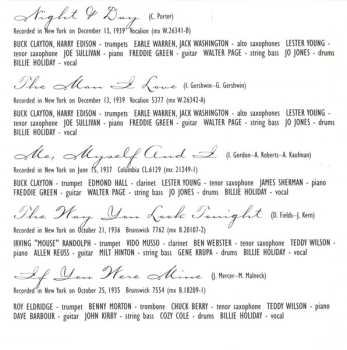 Night & Day (C. Porter)
Recorded in New York on December 13, 1939 Vocalion (mx W.26341-B)
BUCK CLAYTON, HARRY EDISON - trumpets EARLE WARREN, JACK WASHINGTON - alto saxophones LESTER YOUNG -
tenor saxophone JOE SULLIVAN - piano FREDDIE GREEN - guitar WALTER PAGE - string bass JO JONES - drums
BILLIE HOLIDAY - vocal
The Man I Love (I. Gershwin-G. Gershwin)
Recorded in New York on December 13, 1939. Vocalion 5377 (mx W.26342-A)
BUCK CLAYTON, HARRY EDISON - trumpets EARLE WARREN, JACK WASHINGTON - alto saxophones LESTER YOUNG -
tenor saxophone JOE SULLIVAN - piano FREDDIE GREEN - guitar WALTER PAGE - string bass JO JONES - drums
BILLIE HOLIDAY - vocal
Me, Myself And I (I. Gordon-A. Roberts-A. Kaufman)
Recorded in New York on June 15, 1937 Columbia CL.6129 (mx 21249-1)
BUCK CLAYTON - trumpet EDMOND HALL - clarinet LESTER YOUNG - tenor saxophone JAMES SHERMAN - piano
FREDDIE GREEN - guitar WALTER PAGE - string bass JO JONES - drums BILLIE HOLIDAY - vocal
The Way You Look Tonight (D. Fields-J. Kern)
Recorded in New York on October 21, 1936 Brunswick 7762 (mx B.20107-2)
IRVING "MOUSE" RANDOLPH - trumpet VIDO MUSSO - clarinet BEN WEBSTER - tenor saxophone TEDDY WILSON -
piano ALLEN REUSS - guitar MILT HINTON - string bass GENE KRUPA - drums BILLIE HOLIDAY - vocal
If You Were Mine (J. Mercer-M. Malneck)
Recorded in New York on October 25, 1935 Brunswick 7554 (mx B.18209-1)
ROY ELDRIDGE - trumpet BENNY MORTON - trombone CHUCK BERRY - tenor saxophone TEDDY WILSON - piano
DAVE BARBOUR - guitar JOHN KIRBY - string bass COZY COLE - drums BILLIE HOLIDAY - vocal